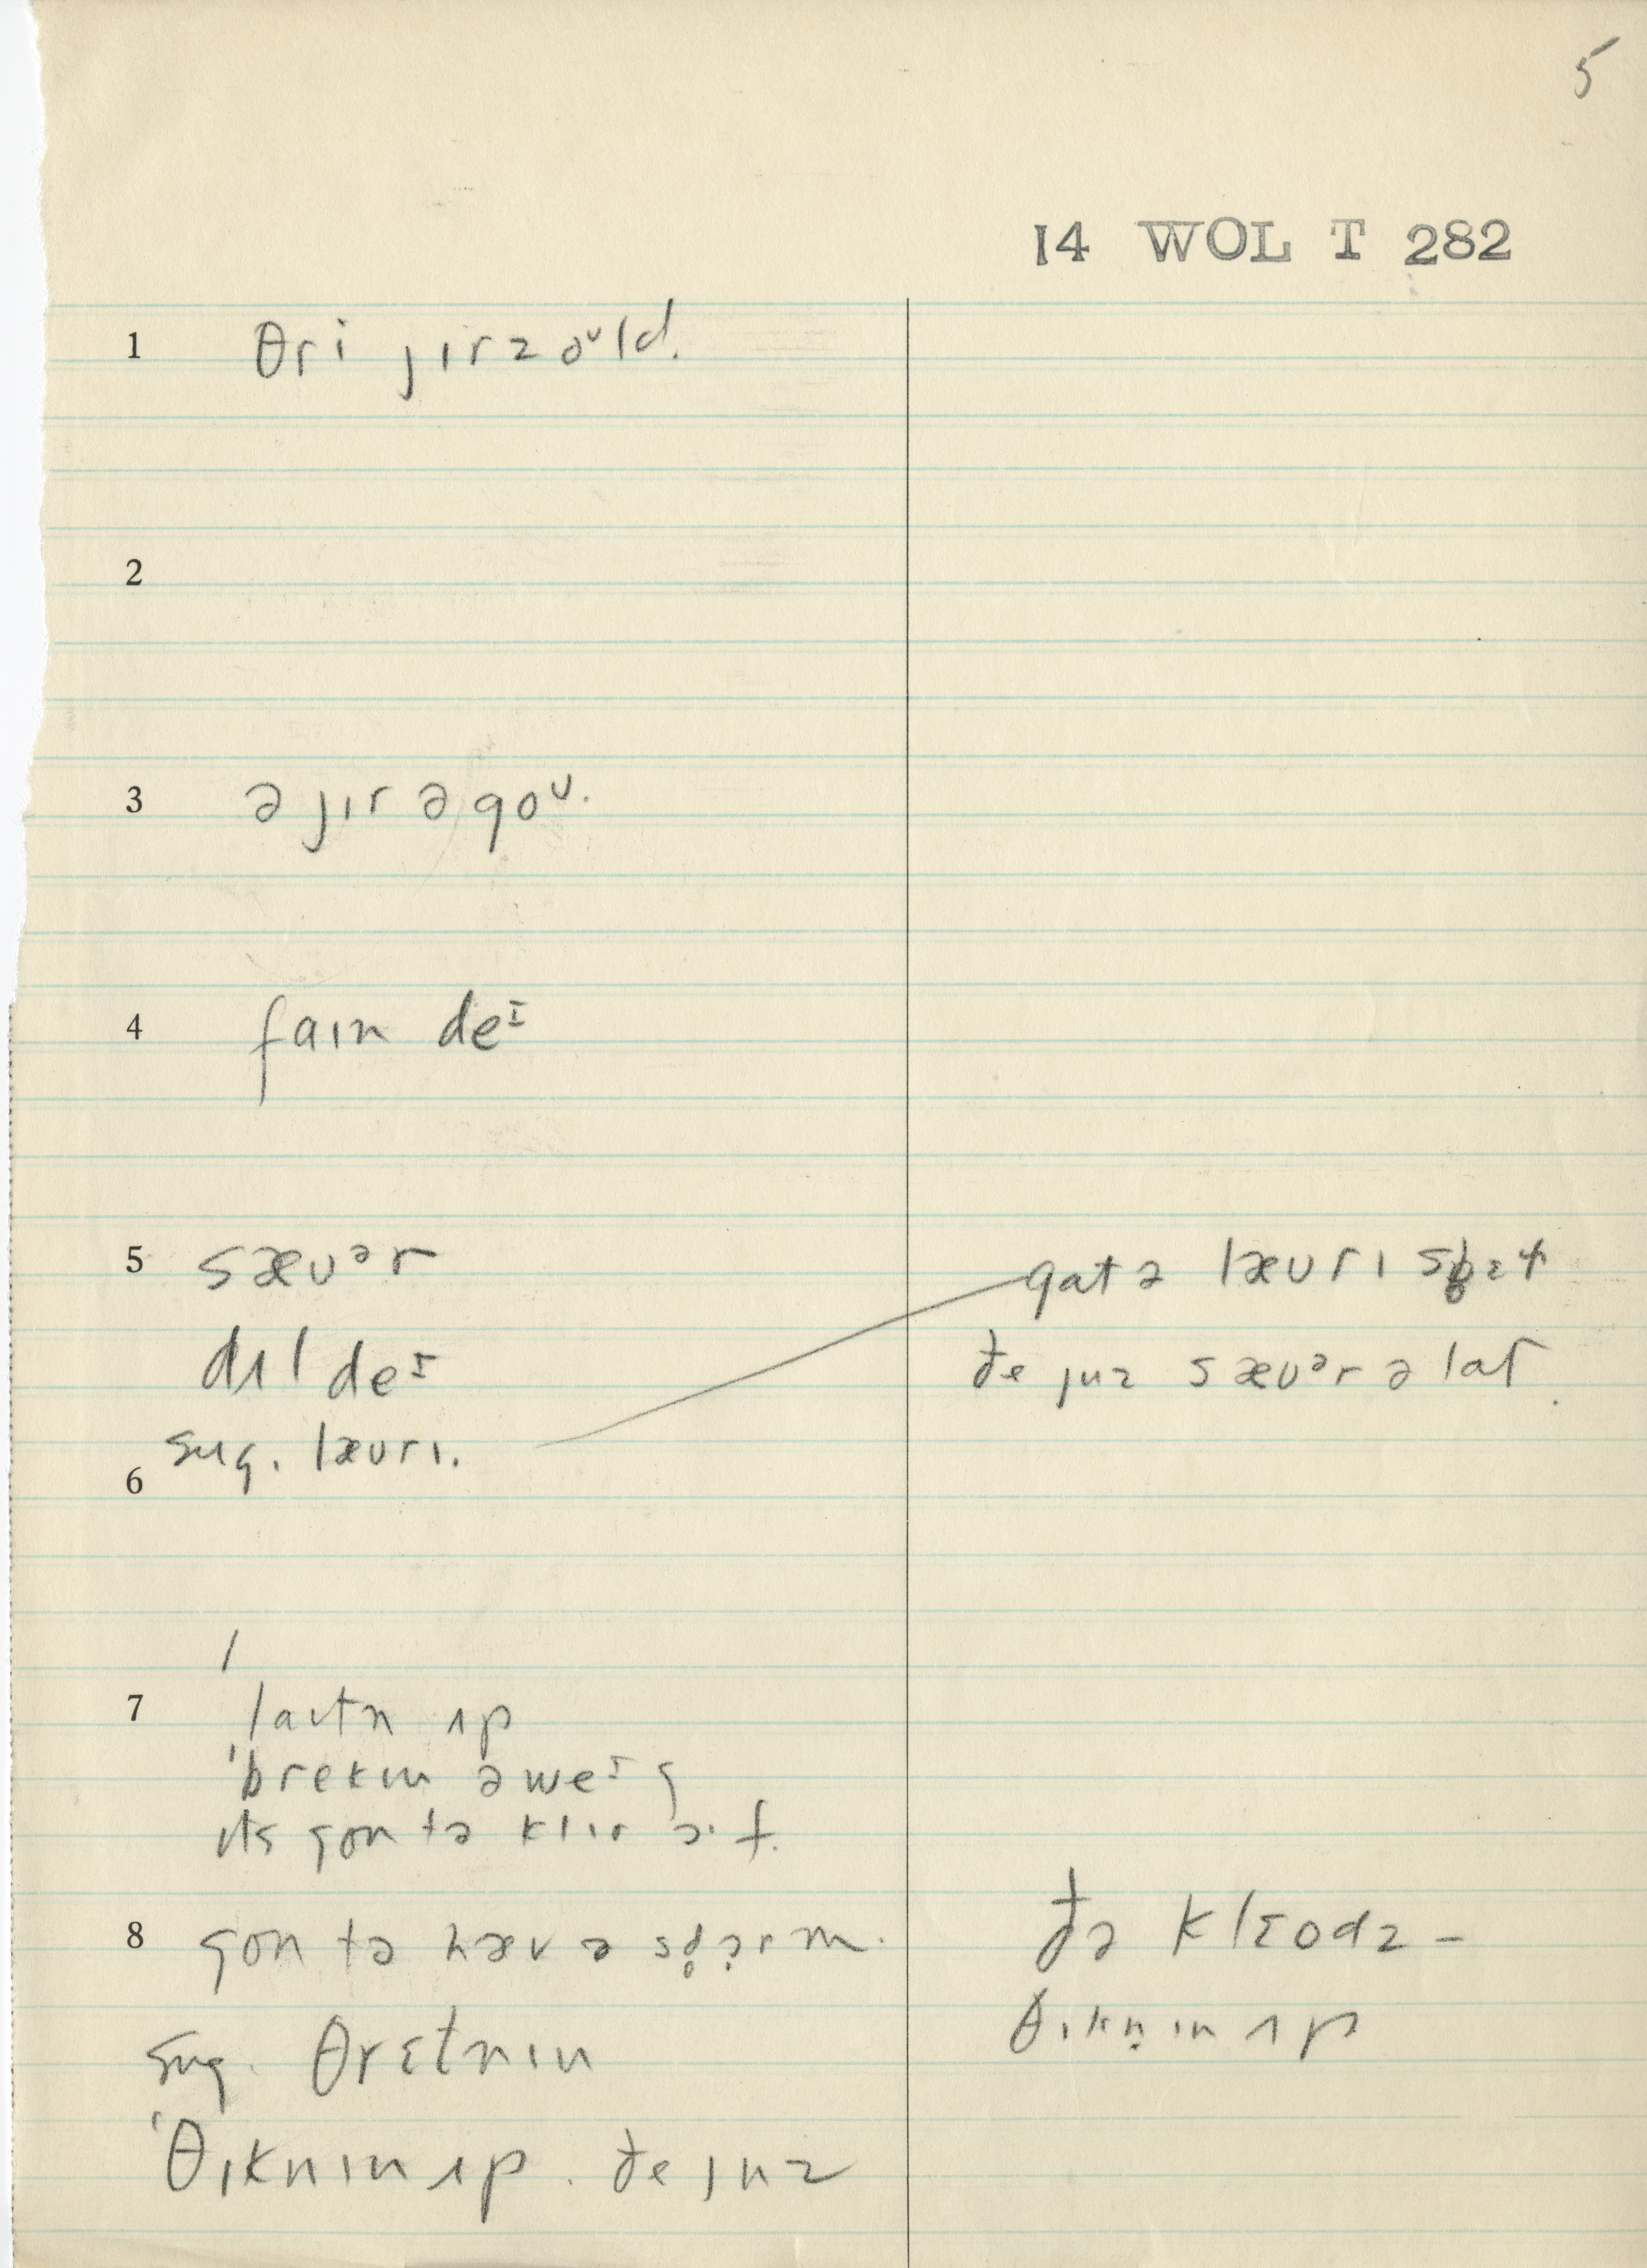 5
14 WOL T 282
1 θri jɪrz oᶸld.
2
3 ə jɪr əgoᶸ.
4 faɪn deᶦ
5 sævᵊr
dʌl deᶦ
sug. lævrɪ.
gat ə lævrɪ
ðe juz sævᵊr ə lat.
6
7 laɪtn ʌp
ˈbrekɪn əweᶦ
ɪts gon tə klɪr ɔ·f.
8 gon tə hæv ə sd̥ɔrm.
sug. θrɛtnɪn
ˈθɪknɪn ʌp. ðe juz
ðə klæodz –
θɪkn̩ɪn ʌp